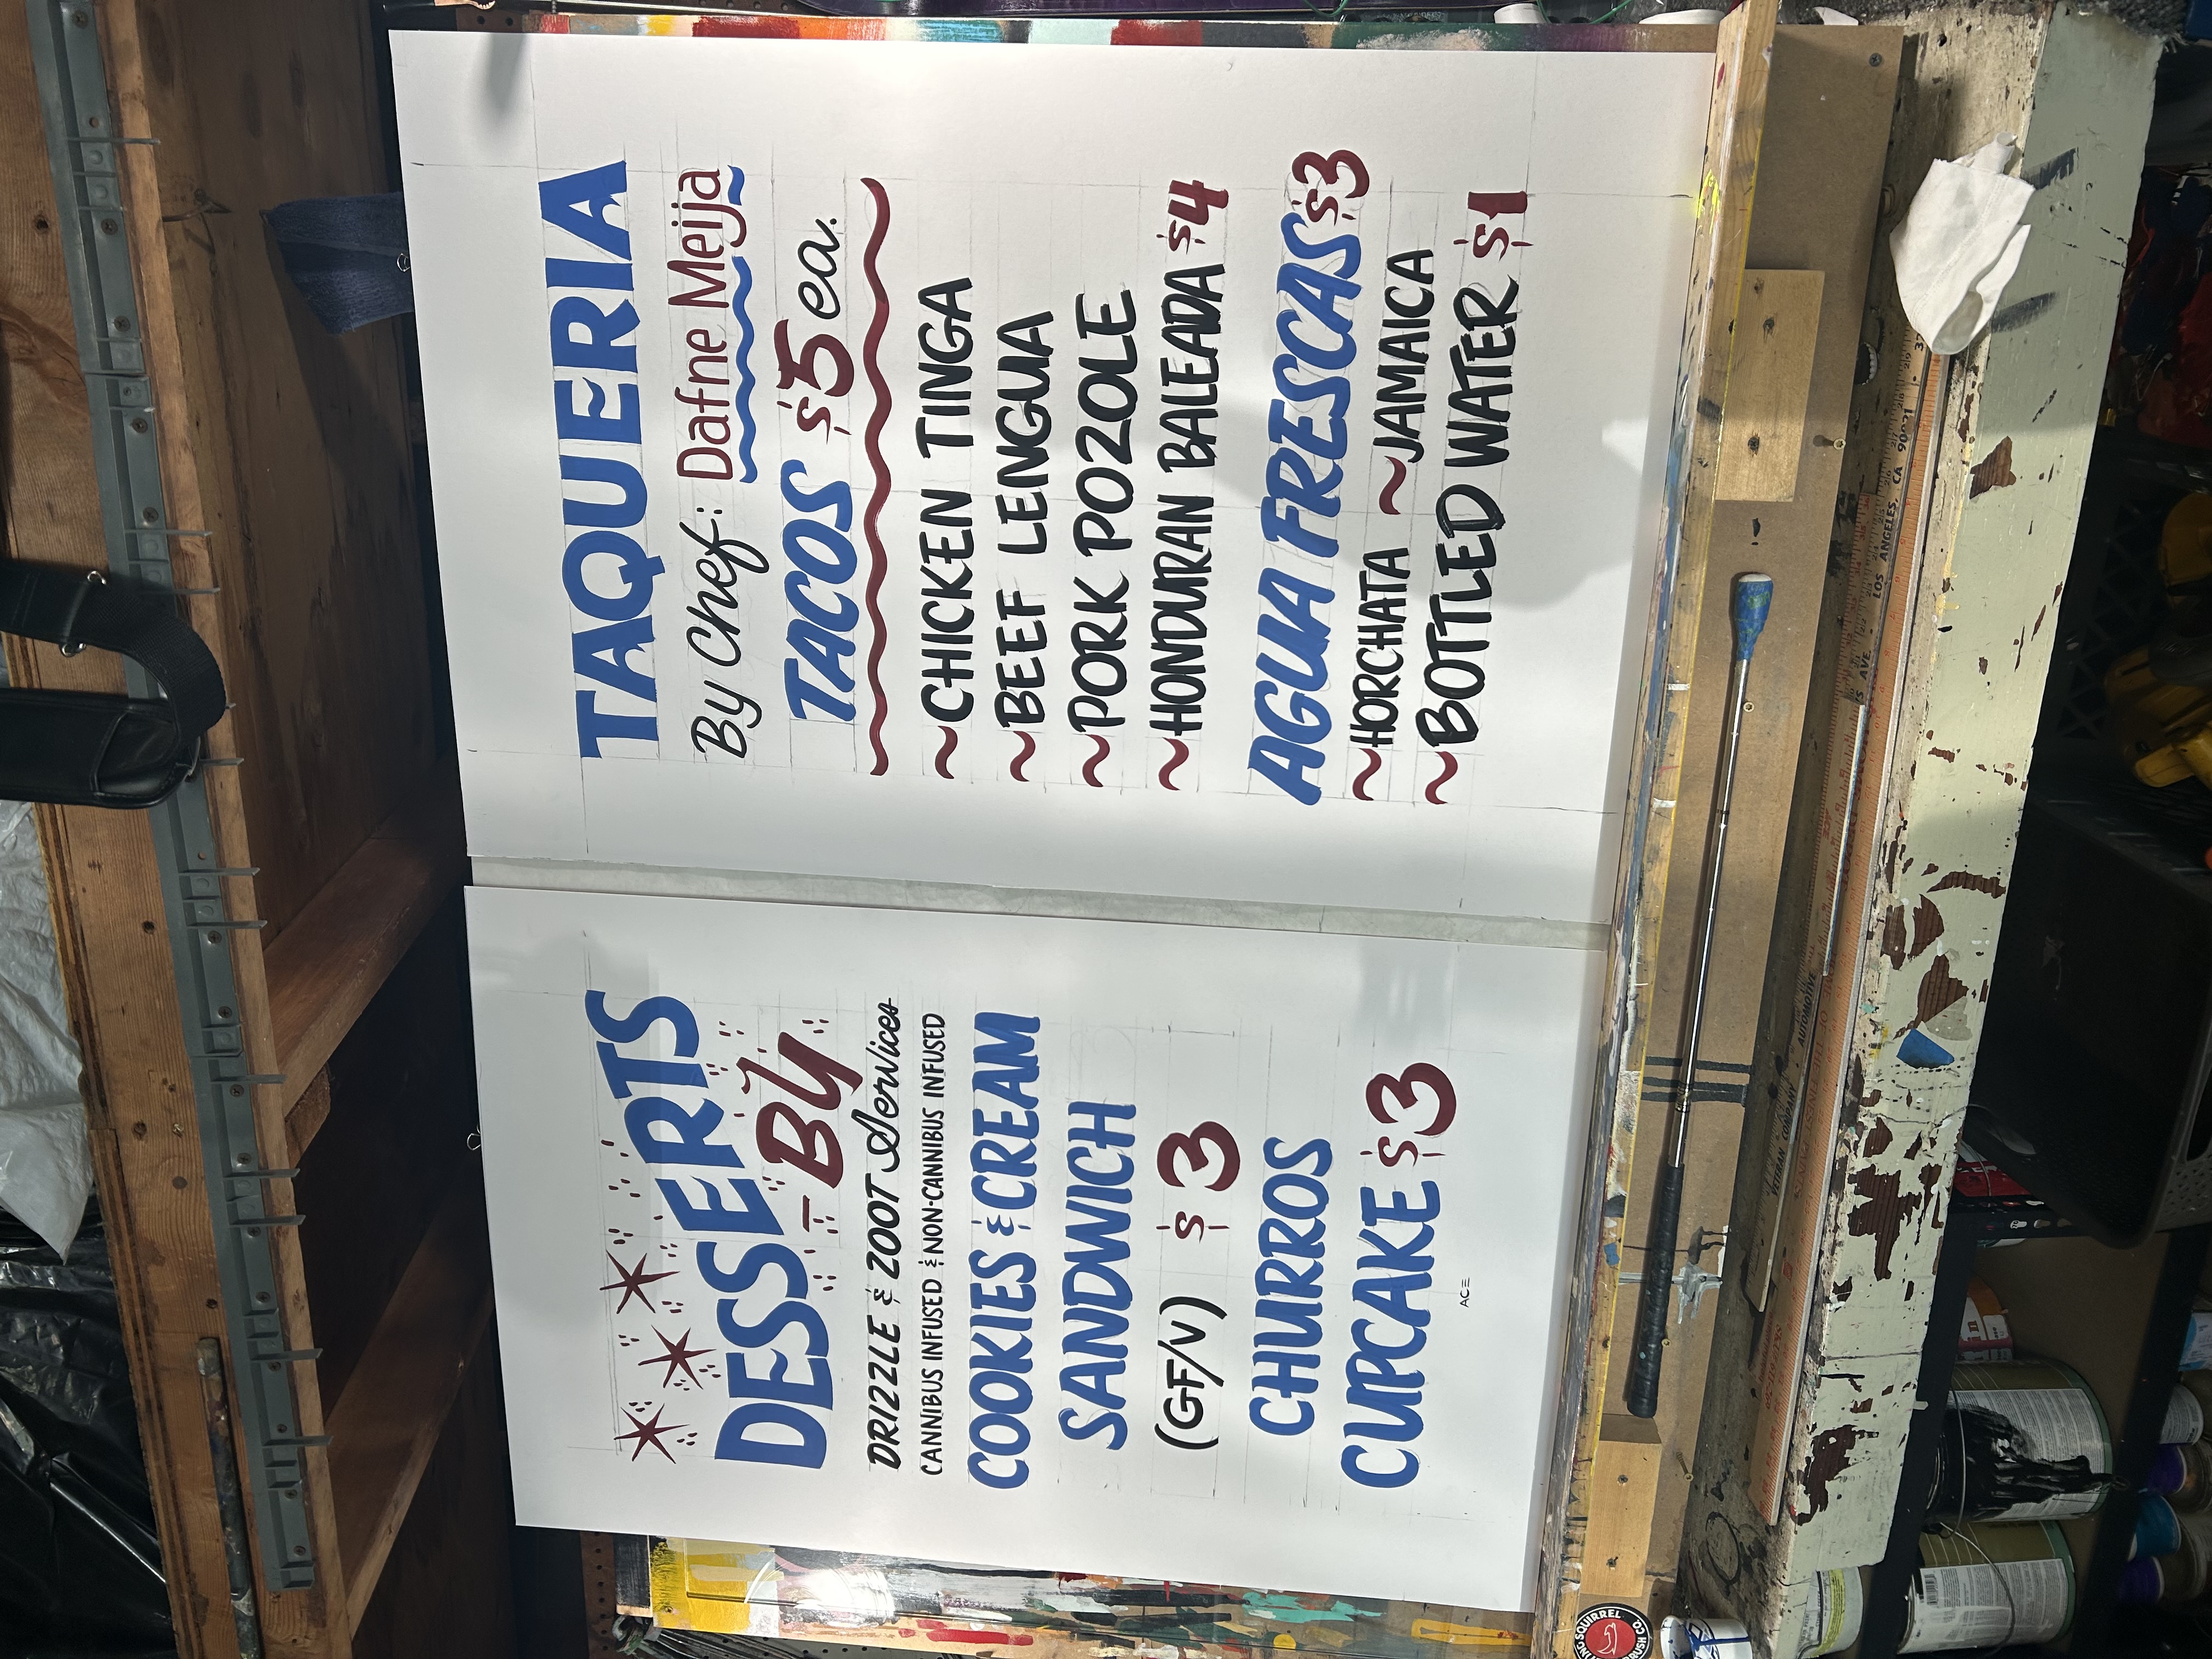 DESSERTS
- By
DRIZZLE & ZOOT Services
CANNIBUS INFUSED & NON-CANNIBUS INFUSED
COOKIES & CREAM
SANDWICH
(GF/V) $3
CHURROS
CUPCAKE $3
ACE
TAQUERIA
By Chef: Dafne Meija
TACOS $5 ea.
~CHICKEN TINGA
~BEEF LENGUA
~PORK POZOLE
~HONDURAN BALEADA $4
AGUA FRESCAS $3
~HORCHATA ~JAMAICA
~BOTTLED WATER $1
SQUIRREL
VETERAN COMPANY
AUTOMOTIVE
OF THE FINEST PAINTS
AVE.
LOS ANGELES, CA